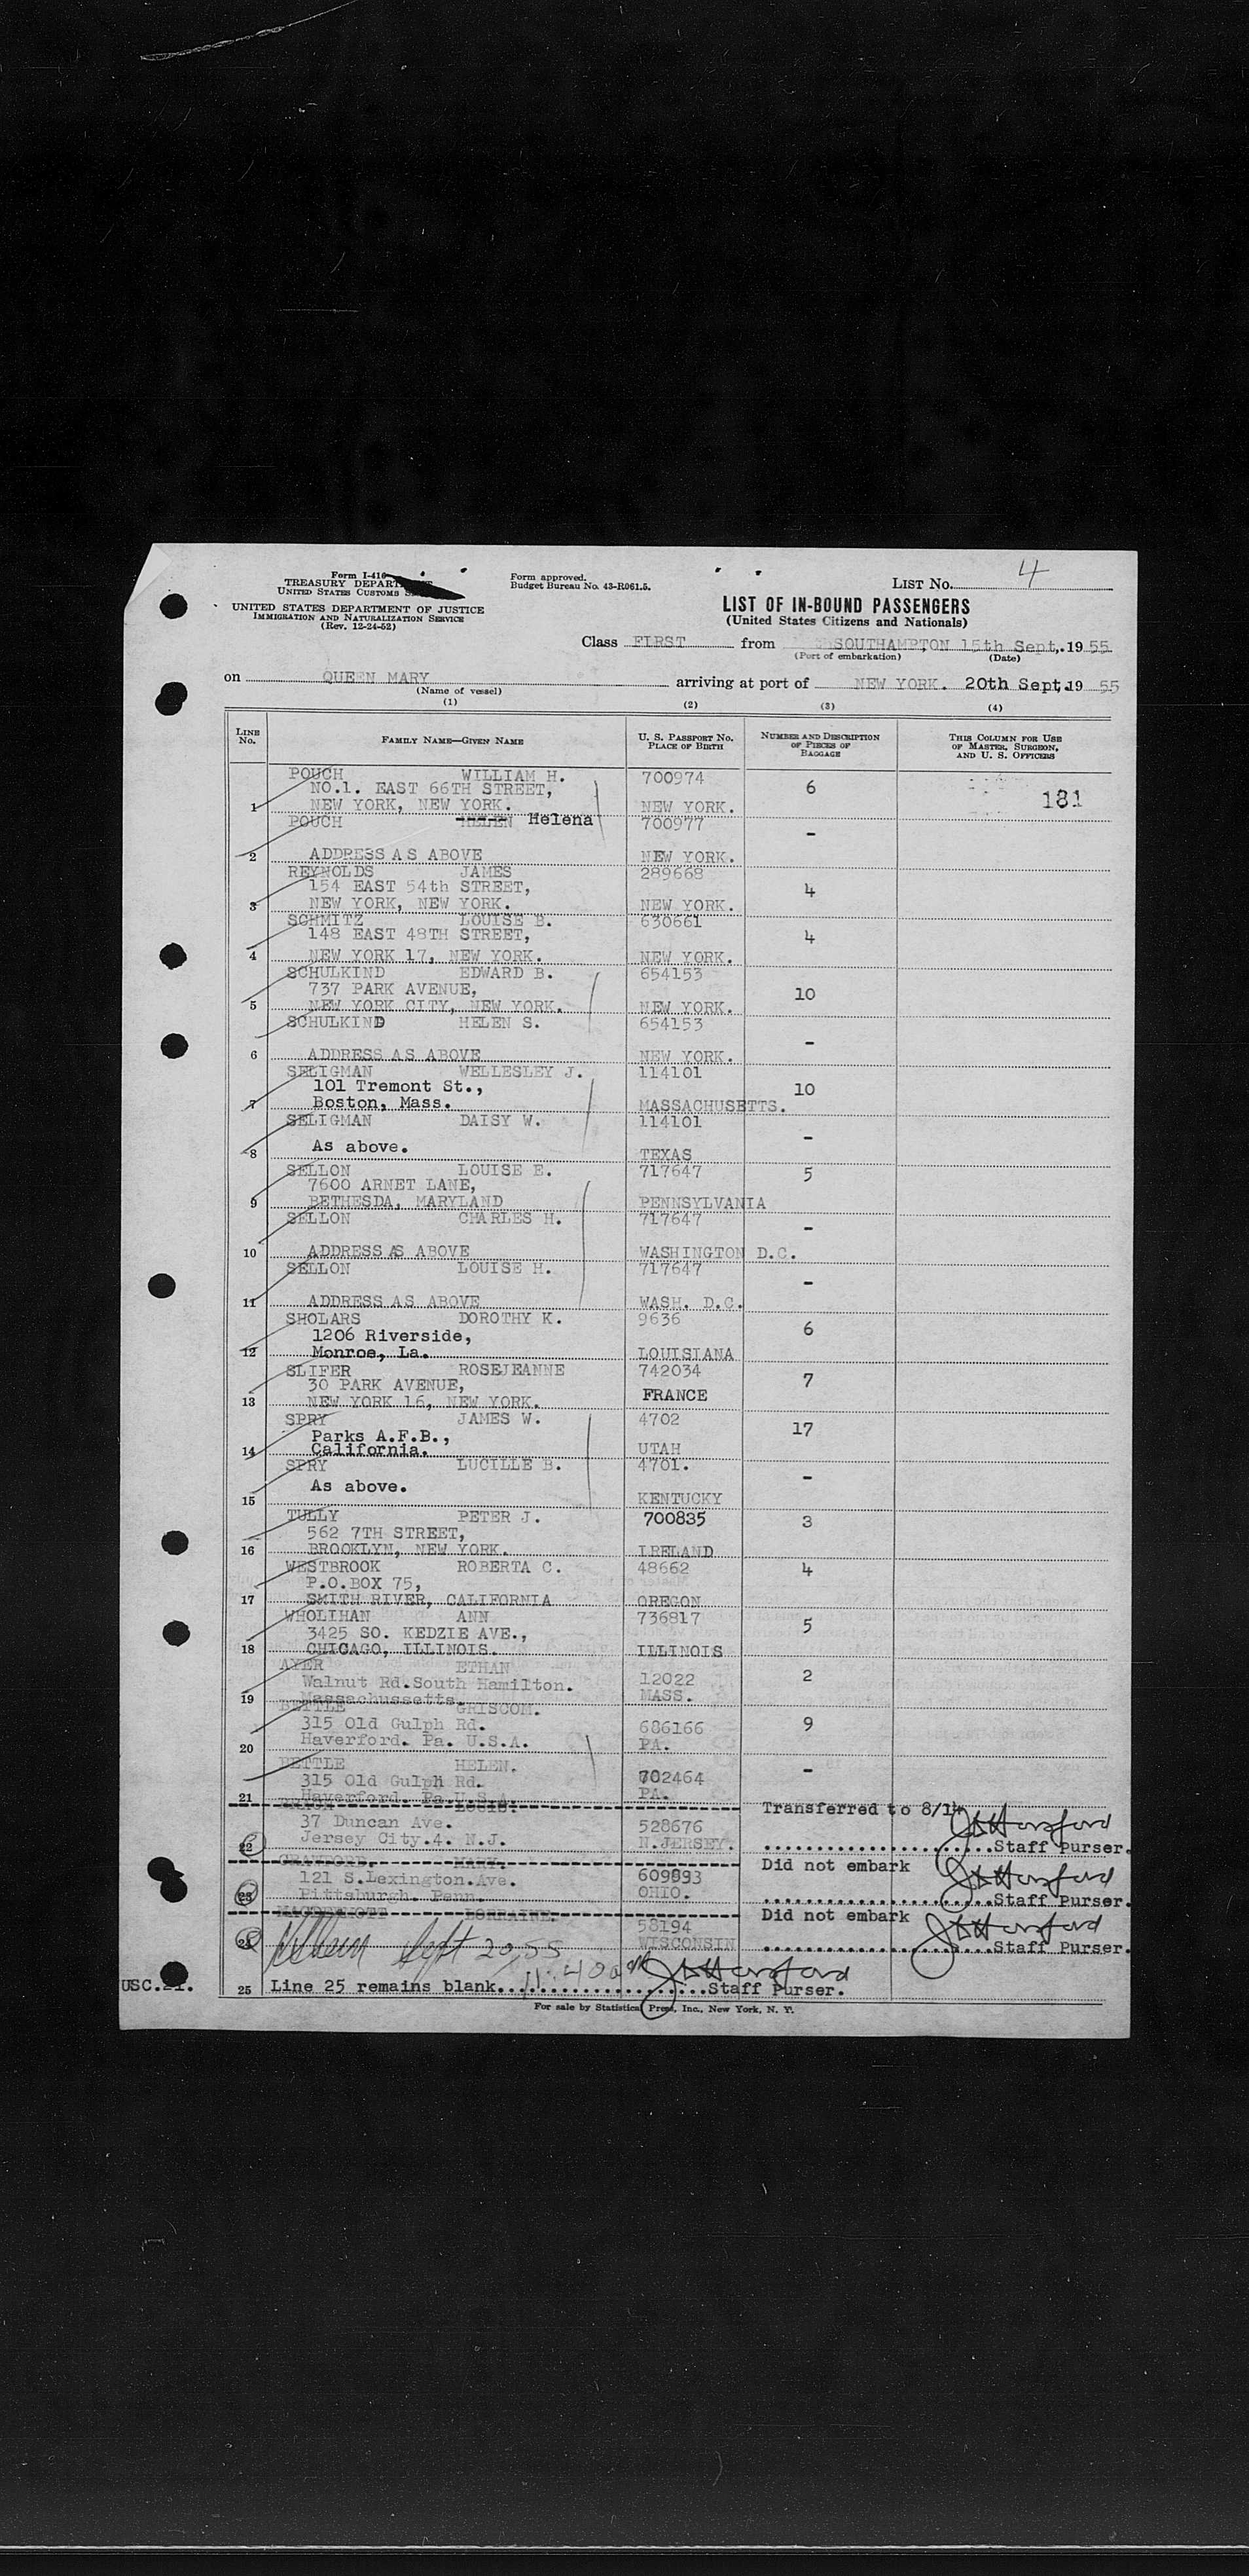 Form I-416
TREASURY DEPARTMENT
UNITED STATES CUSTOMS
UNITED STATES DEPARTMENT OF JUSTICE
IMMIGRATION AND NATURALIZATION SERVICE
(Rev. 12-24-52)
Form approved.
Budget Bureau No. 43-R061.5.
LIST NO. 4
LIST OF IN-BOUND PASSENGERS
(United States Citizens and Nationals)
Class FIRST from SOUTHAMPTON 15th Sept., 19 55
(Port of embarkation) (Date)
on QUEEN MARY arriving at port of NEW YORK. 20th Sept. 19 55
(Name of vessel)
(1) (2) (3) (4)
LINE NO. FAMILY NAME—GIVEN NAME U. S. PASSPORT NO. PLACE OF BIRTH NUMBER AND DESCRIPTION OF PIECES OF BAGGAGE THIS COLUMN FOR USE OF MASTER, SURGEON, AND U. S. OFFICERS
POUCH WILLIAM H. 700974
NO.1. EAST 66TH STREET, 6
1 NEW YORK, NEW YORK. NEW YORK. 181
POUCH HELEN Helena 700977
-
2 ADDRESS AS ABOVE NEW YORK.
REYNOLDS JAMES 289668
154 EAST 54th STREET, 4
3 NEW YORK, NEW YORK. NEW YORK.
SCHMITZ LOUISE B. 630661
148 EAST 48TH STREET, 4
4 NEW YORK 17, NEW YORK. NEW YORK.
SCHULKIND EDWARD B. 654153
737 PARK AVENUE, 10
5 NEW YORK CITY, NEW YORK. NEW YORK.
SCHULKIND HELEN S. 654153
-
6 ADDRESS AS ABOVE NEW YORK.
SELIGMAN WELLESLEY J. 114101
101 Tremont St., 10
7 Boston, Mass. MASSACHUSETTS.
SELIGMAN DAISY W. 114101
8 As above. TEXAS -
SELLON LOUISE E. 717647 5
7600 ARNET LANE,
9 BETHESDA, MARYLAND PENNSYLVANIA
SELLON CHARLES H. 717647 -
10 ADDRESS AS ABOVE WASHINGTON D.C.
SELLON LOUISE H. 717647 -
11 ADDRESS AS ABOVE WASH. D.C.
SHOLARS DOROTHY K. 9636
1206 Riverside, 6
12 Monroe, La. LOUISIANA
SLIFER ROSEJEANNE 742034
30 PARK AVENUE, 7
13 NEW YORK 16, NEW YORK. FRANCE
SPRY JAMES W. 4702
Parks A.F.B., 17
14 California. UTAH
SPRY LUCILLE B. 4701.
As above. -
15 KENTUCKY
TULLY PETER J. 700835 3
562 7TH STREET,
16 BROOKLYN, NEW YORK. IRELAND
WESTBROOK ROBERTA C. 48662 4
P.O.BOX 75,
17 SMITH RIVER, CALIFORNIA OREGON
WHOLIHAN ANN 736817
3425 SO. KEDZIE AVE., 5
18 CHICAGO, ILLINOIS. ILLINOIS
AYER ETHAN
Walnut Rd.South Hamilton. 12022 2
19 Massachussetts. MASS.
BETTLE GRISCOM.
315 Old Gulph Rd. 686166 9
20 Haverford. Pa. U.S.A. PA.
BETTLE HELEN.
315 Old Gulph Rd. 702464 -
21 Haverford. Pa. U.S.A. PA.
Transferred to 8/14
37 Duncan Ave. 528676
22 Jersey City.4. N.J. N.JERSEY. Staff Purser.
CRAWFORD. MARY. Did not embark
121 S.Lexington.Ave. 609893
23 Pittsburgh. Penn. OHIO. Staff Purser.
MACDERMOTT LORRAINE. Did not embark
58194
24 Sept 20, 55 WISCONSIN Staff Purser.
11:40am
USC.21. 25 Line 25 remains blank. Staff Purser.
For sale by Statistical Press, Inc., New York, N. Y.